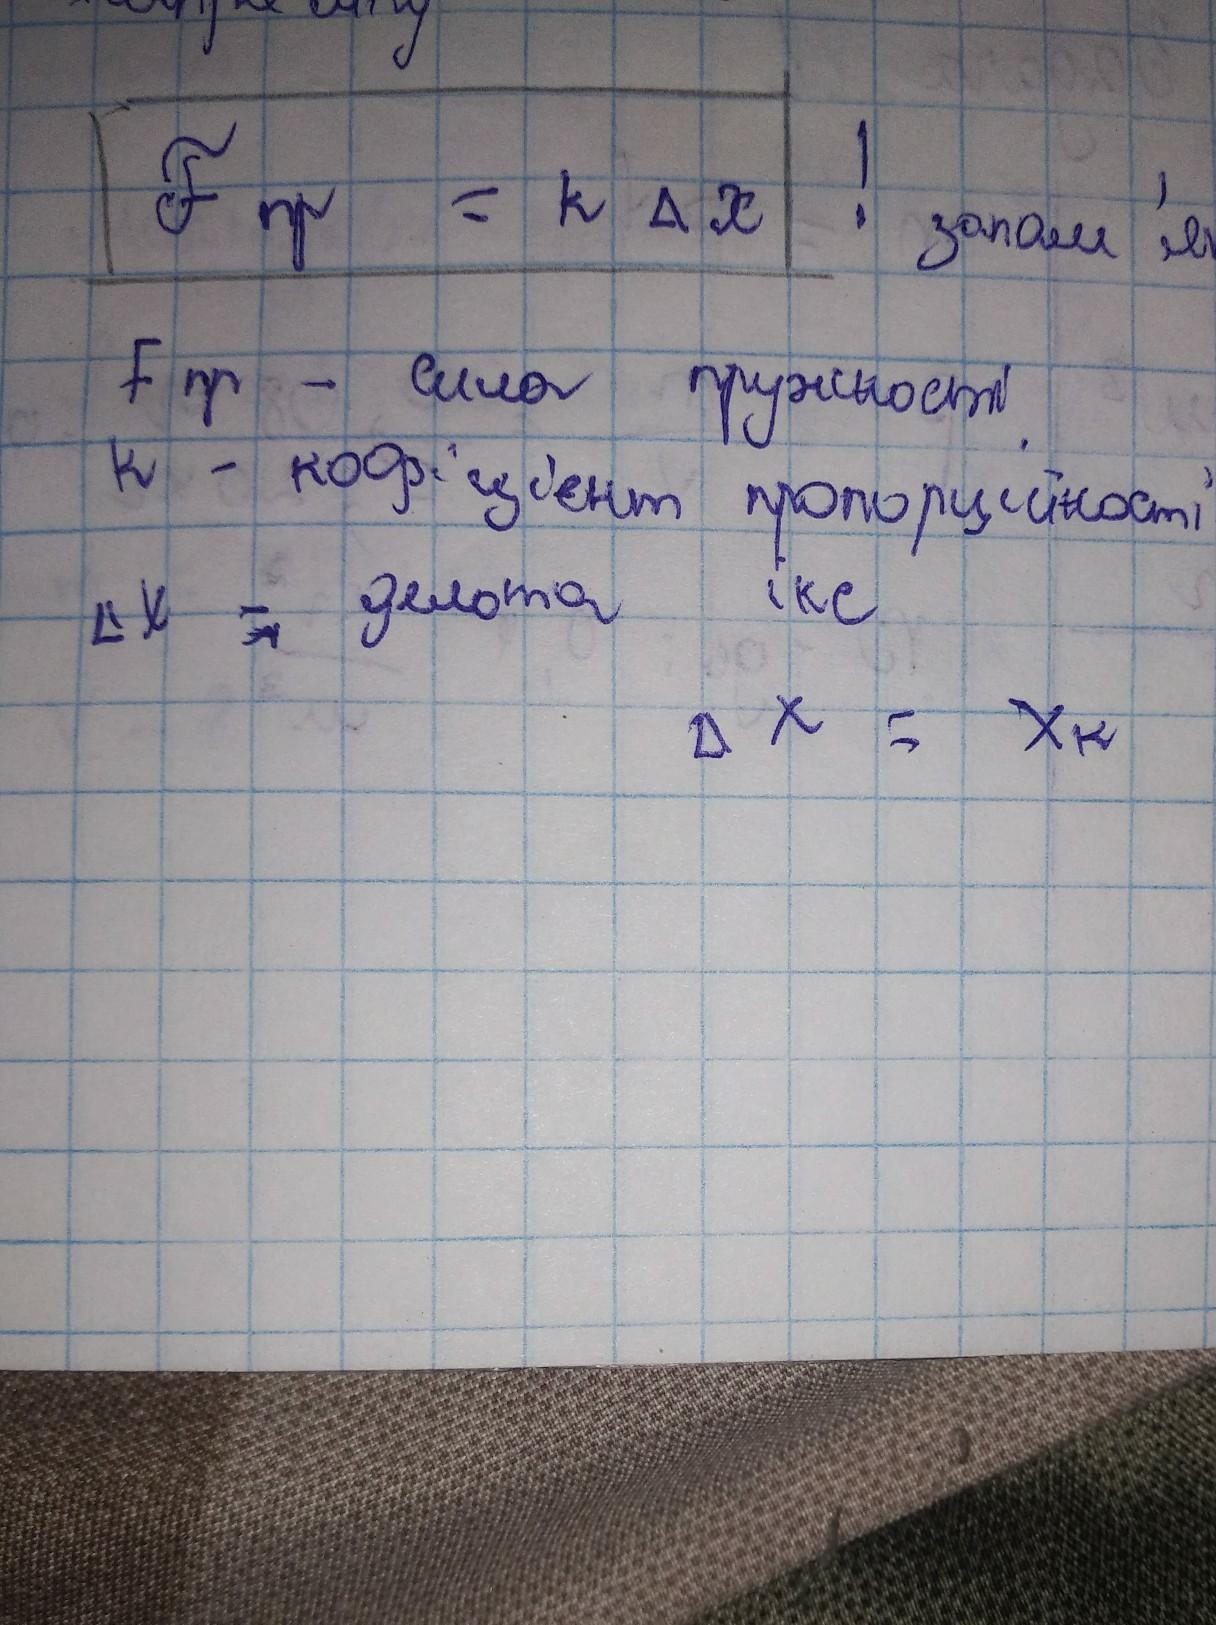 Fпр = k Δx ! запам'я
Fпр - сила пружності
k - кофіцієнт пропорційності
Δx = дельта ікс
Δx = xк